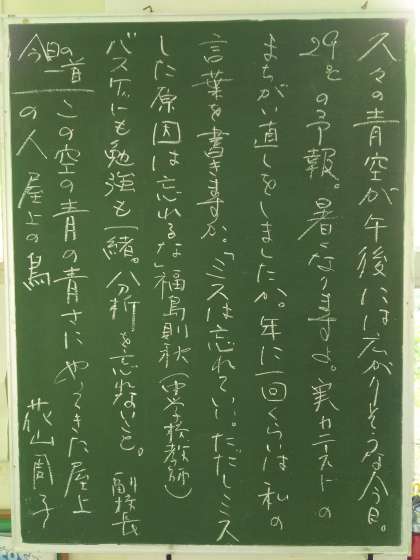 久々の青空が午後には広がりそうな今日。
29℃の予報。暑くなりますよ。実力テストの
まちがい直しをしましたか。年に一回くらいは私の
言葉を書きますか。「ミスは忘れていい。ただしミス
した原因は忘れるな」福島則秋（中学校教師）
バスケにも勉強も一緒。分析を忘れないこと。 副校長
今日の一首 この空の青の青さにやってきた屋上
の人 屋上の鳥 花山周子